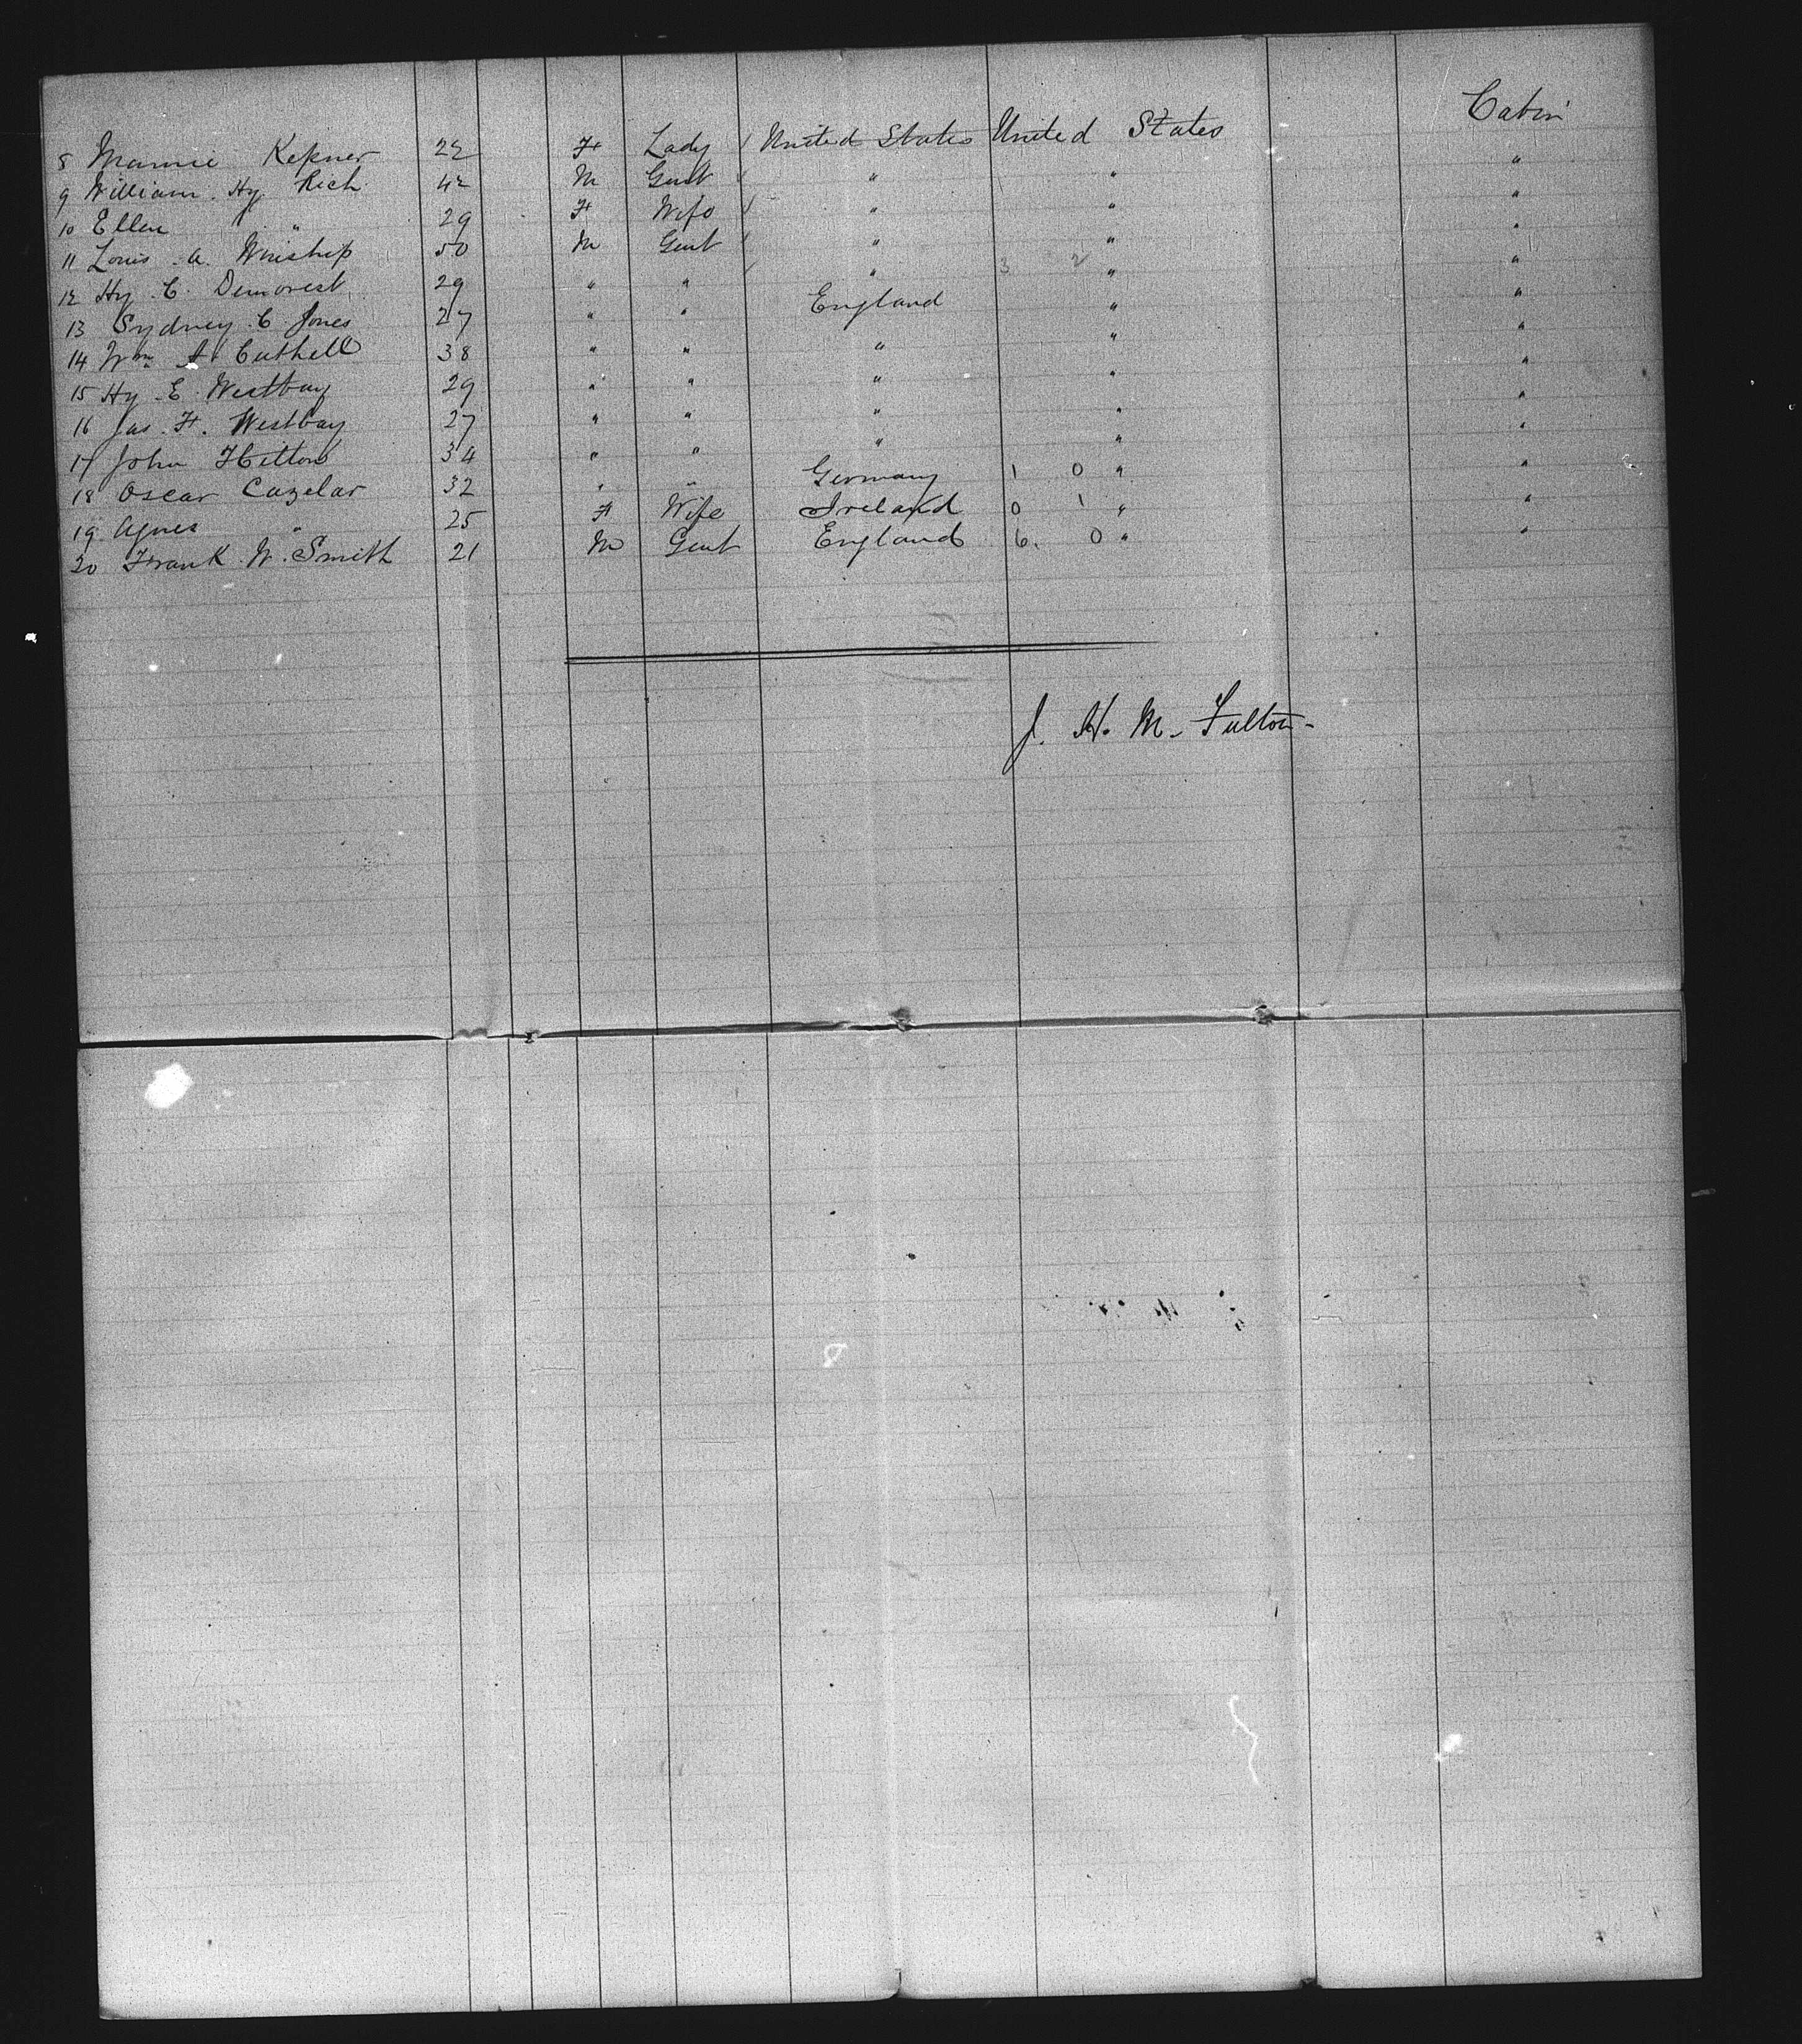 Cabin
8 Mamie Kepner 22 F Lady / United States United States "
9 William Hy Rich 42 M Gent / " "  "
10 Ellen " 29 F Wife / " " "
11 Louis A. Winship 50 M Gent / " " "
12 Hy C. Demorest 29 " " / " 3 2 " "
13 Sydney C. Jones 27 " " England " "
14 Wm A. Cuthell 38 " " " " "
15 Hy E. Westbay 29 " " " " "
16 Jas. H. Westbay 27 " " " " "
17 John Hilton 34 " " " " "
18 Oscar Cazelar 32 " " Germany 1 0 " "
19 Agnes " 25 F Wife Ireland 0 1 " "
20 Frank W. Smith 21 M Gent England 6. 0 " "
J. H. M. Fulton